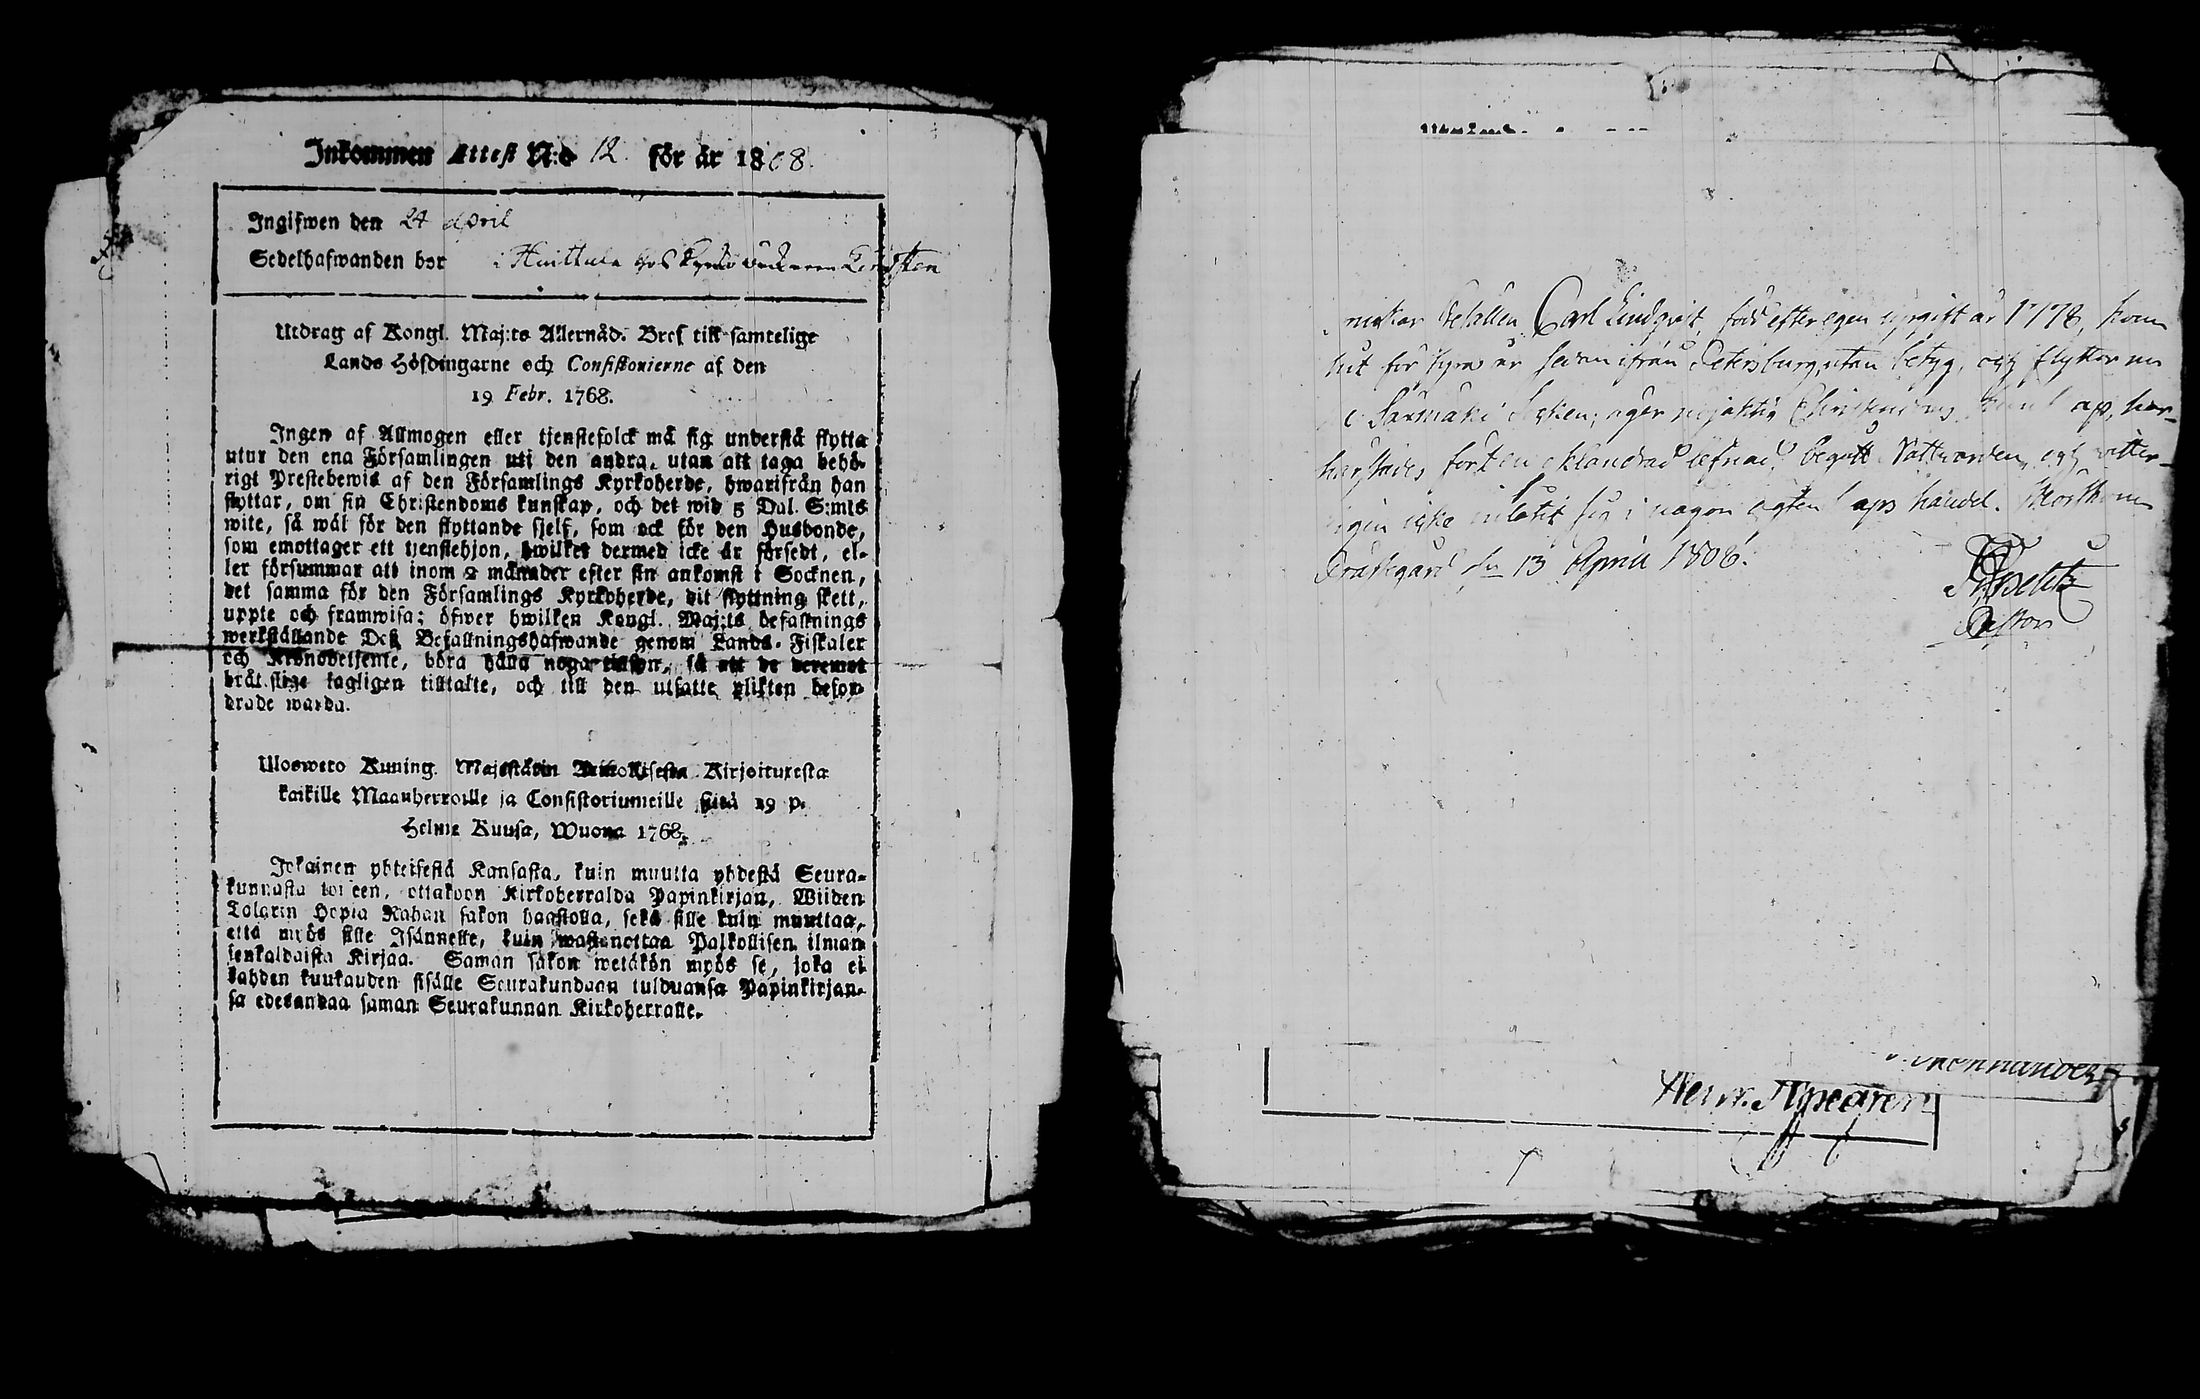 Inkommen Attest N:o 12. för år 1808.
Ingifwen den 24 April
Sedelhafwanden bor i Huittula hos
Utdrag af Kongl. Maj:ts Allernåd. Bref till samtelige
Lands Höfdingarne och Consistorierne af den
19 Febr. 1768.
Ingen af Allmogen eller tjenstefolck må sig understå flytta
utur den ena Församlingen uti den andra, utan att taga behö-
rigt Prestebewis af den Församlings Kyrkoherde, hwarifrån han
flyttar, om sin Christendoms kunskap, och det wid 5 Dal. S:mts
wite, så wäl för den flyttande sjelf, som ock för den Husbonde,
som emottager ett tjenstehjon, hwilket dermed icke är försedt, el-
ler försummar att inom 2 månader efter sin ankomst i Socknen,
det samma för den Församlings Kyrkoherde, dit flyttning skett,
uppte och framwisa; öfwer hwilken Kongl. Maj:ts befallnings
werkställande Deß Befallningshafwande genom Lands-Fiskaler
och Kronobetjente, böra hålla noga tillsyn, så att de deremot
bråt slige lagligen tilltalte, och till den utsatte plikten befor-
drade warda.
Uloswето Kuning. Majestätin Kirjoituxesta
kaikille Maanherroille ja Consistoriumeille siitä 19 p.
Helme Kuusa, Wuona 1768.
Jokainen yhteisestä Kansasta, kuin muutta yhdestä Seura-
kunnasta toiseen, ottakoon Kirkoherralda Papinkirjan, Wiiden
Talarin Hopia Rahan sakon haastolla, sekä sille kuin muuttaa,
että myös sille Isännelle, kuin wastanottaa Palkollisen ilman
senkaldaista Kirjaa. Saman sakon wetäkön myös se, joka ei
kahden kuukauden sisälle Seurakundaan tulduansa Papinkirjan-
sa edesandaa saman Seurakunnan Kirkoherralle.
Gesällen Carl Lindqvist, född efter egen upgift år 1778, kom
hit för fyra år sedan ifrån Petersburg, utan betyg, och flyttar nu
Saxmäki Socken; äger nöjaktig Christendoms kunskap, har
härstädes fört en oklandrad lefnad, begått Nattvarden, och
icke inlåtit sig i någon ägtenskaps handel.
Prästgård den 13 April 1808.
Pastor
Henr.